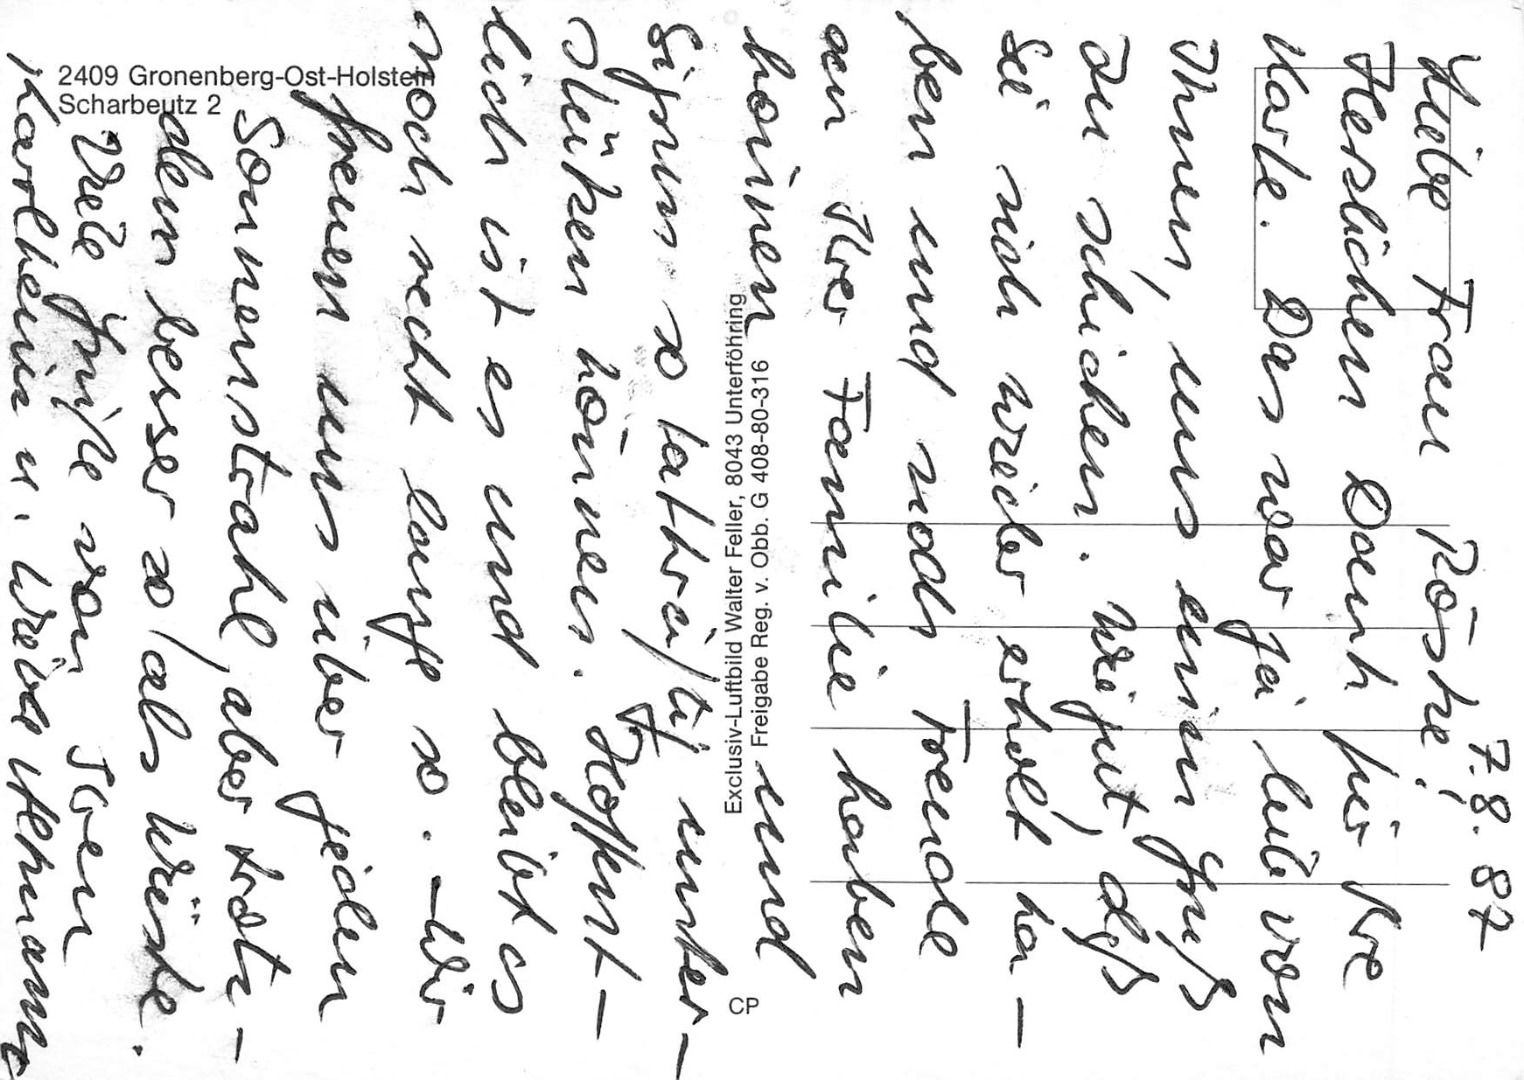 2409 Gronenberg-Ost-Holstein
Scharbeutz 2
Exclusiv-Luftbild Walter Feller, 8043 Unterföhring
Freigabe Reg. v. Obb. G 408-80-316
CP
7.8.87
Liebe Frau
Herzlichen Dank für Ihre
Karte. Das war ja lieb von
Ihnen, uns einen Gruß
zu schicken. Wie gut, daß
Sie sich wieder erholt ha-
ben und noch Freude
an Ihrer Familie haben
können und
so tatkräftig unter-
stützen können. Hoffent-
lich ist es und bleibt es
noch recht lange so. - Wir
freuen uns über jeden
Sonnenstrahl, aber trotz-
dem besser so, als Wüste.
Viele Grüße von Ihren
Karlheinz u.